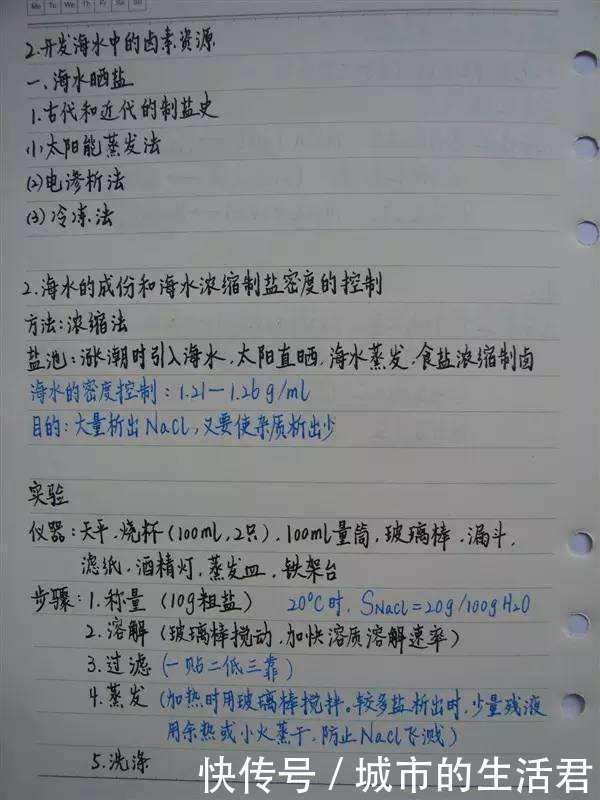 Mo Tu We Th Fr Sa Su
2.开发海水中的卤素资源
一、海水晒盐
1.古代和近代的制盐史
(1)太阳能蒸发法
(2)电渗析法
(3)冷冻法
2.海水的成份和海水浓缩制盐密度的控制
方法:浓缩法
盐池:涨潮时引入海水.太阳直晒.海水蒸发.食盐浓缩制卤
海水的密度控制:1.21—1.26g/ml
目的:大量析出NaCl,又要使杂质析出少
实验
仪器:天平.烧杯(100ml,2只).100ml量筒.玻璃棒.漏斗.
滤纸.酒精灯.蒸发皿.铁架台
步骤:1.称量(10g粗盐) 20℃时,SNaCl=20g/100gH2O
2.溶解(玻璃棒搅动.加快溶质溶解速率)
3.过滤(一贴二低三靠)
4.蒸发(加热时用玻璃棒搅拌。较多盐析出时,少量残液
用余热或小火蒸干.防止NaCl飞溅)
5.洗涤
快传号/城市的生活君